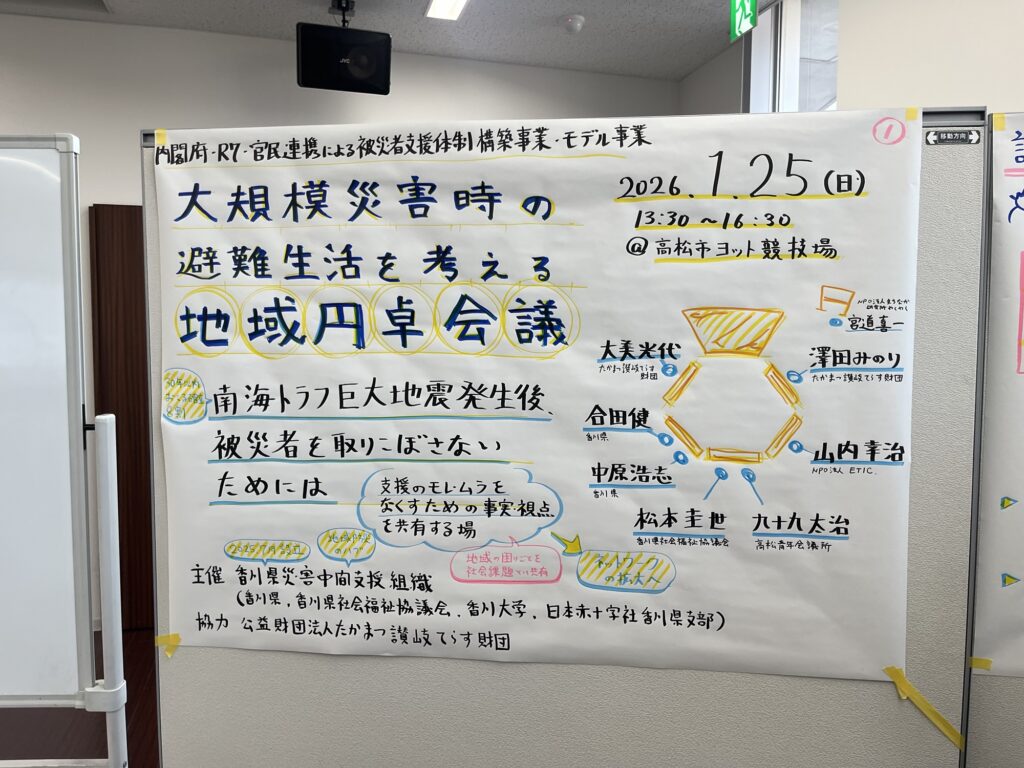 JVC
内閣府・R7・官民連携による被災者支援体制構築事業・モデル事業
①
移動方向
大規模災害時の
避難生活を考える
地域円卓会議
2026.1.25(日)
13:30～16:30
@高松市ヨット競技場
南海トラフ巨大地震発生後、
被災者を取りこぼさない
ためには
支援のモレムラを
なくすための事実・視点
を共有する場
地域の困りごとを
社会課題として共有
ネットワーク
の拡大へ
2025年7月設立
主催 香川県災害中間支援組織
(香川県,香川県社会福祉協議会、香川大学、日本赤十字社香川県支部)
協力 公益財団法人たかまつ讃岐てらす財団
宮道喜一
大美光代
たかまつ讃岐てらす
財団
澤田みのり
たかまつ讃岐てらす財団
合田健
香川県
山内幸治
NPO法人 ETIC.
中原浩志
香川県
松本圭世
香川県社会福祉協議会
九十九太治
高松青年会議所